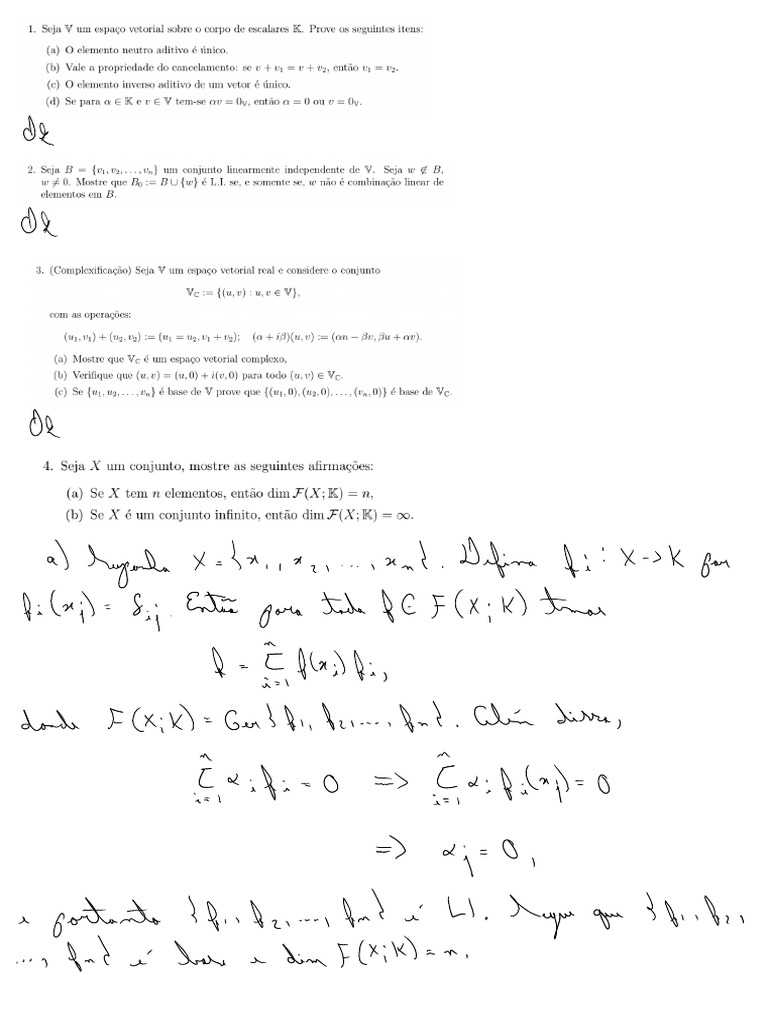 1. Seja 𝕍 um espaço vetorial sobre o corpo de escalares 𝕂. Prove os seguintes itens:
(a) O elemento neutro aditivo é único.
(b) Vale a propriedade do cancelamento: se v + v₁ = v + v₂, então v₁ = v₂.
(c) O elemento inverso aditivo de um vetor é único.
(d) Se para α ∈ 𝕂 e v ∈ 𝕍 tem-se αv = 0_𝕍, então α = 0 ou v = 0_𝕍.
Ok
2. Seja B = {v₁, v₂, . . . , vₙ} um conjunto linearmente independente de 𝕍. Seja w ∉ B,
w ≠ 0. Mostre que B₀ := B ∪ {w} é L.I. se, e somente se, w não é combinação linear de
elementos em B.
Ok
3. (Complexificação) Seja 𝕍 um espaço vetorial real e considere o conjunto
𝕍_ℂ := {(u, v) : u, v ∈ 𝕍},
com as operações:
(u₁, v₁) + (u₂, v₂) := (u₁ = u₂, v₁ + v₂); (α + iβ)(u, v) := (αu − βv, βu + αv).
(a) Mostre que 𝕍_ℂ é um espaço vetorial complexo,
(b) Verifique que (u, v) = (u, 0) + i(v, 0) para todo (u, v) ∈ 𝕍_ℂ.
(c) Se {u₁, u₂, . . . , vₙ} é base de 𝕍 prove que {(u₁, 0), (u₂, 0), . . . , (vₙ, 0)} é base de 𝕍_ℂ.
Ok
4. Seja X um conjunto, mostre as seguintes afirmações:
(a) Se X tem n elementos, então dim 𝓕(X; 𝕂) = n,
(b) Se X é um conjunto infinito, então dim 𝓕(X; 𝕂) = ∞.
a) Suponha X = {x₁, x₂, ..., xₙ}. Defina fᵢ : X → K por
fᵢ(xⱼ) = δᵢⱼ. Então para toda f ∈ F(X; K) temos
f = Σⁿᵢ₌₁ f(xᵢ) fᵢ,
donde F(X; K) = Ger{f₁, f₂, ..., fₙ}. Além disso,
Σⁿᵢ₌₁ αᵢ fᵢ = 0 => Σⁿᵢ₌₁ αᵢ fᵢ(xⱼ) = 0
=> αⱼ = 0,
e portanto {f₁, f₂, ..., fₙ} é LI. Segue que {f₁, f₂,
..., fₙ} é base e dim F(X; K) = n.